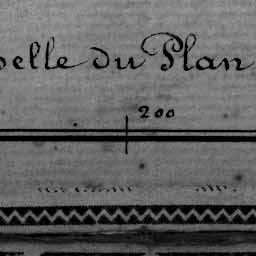 elle du Plan
200